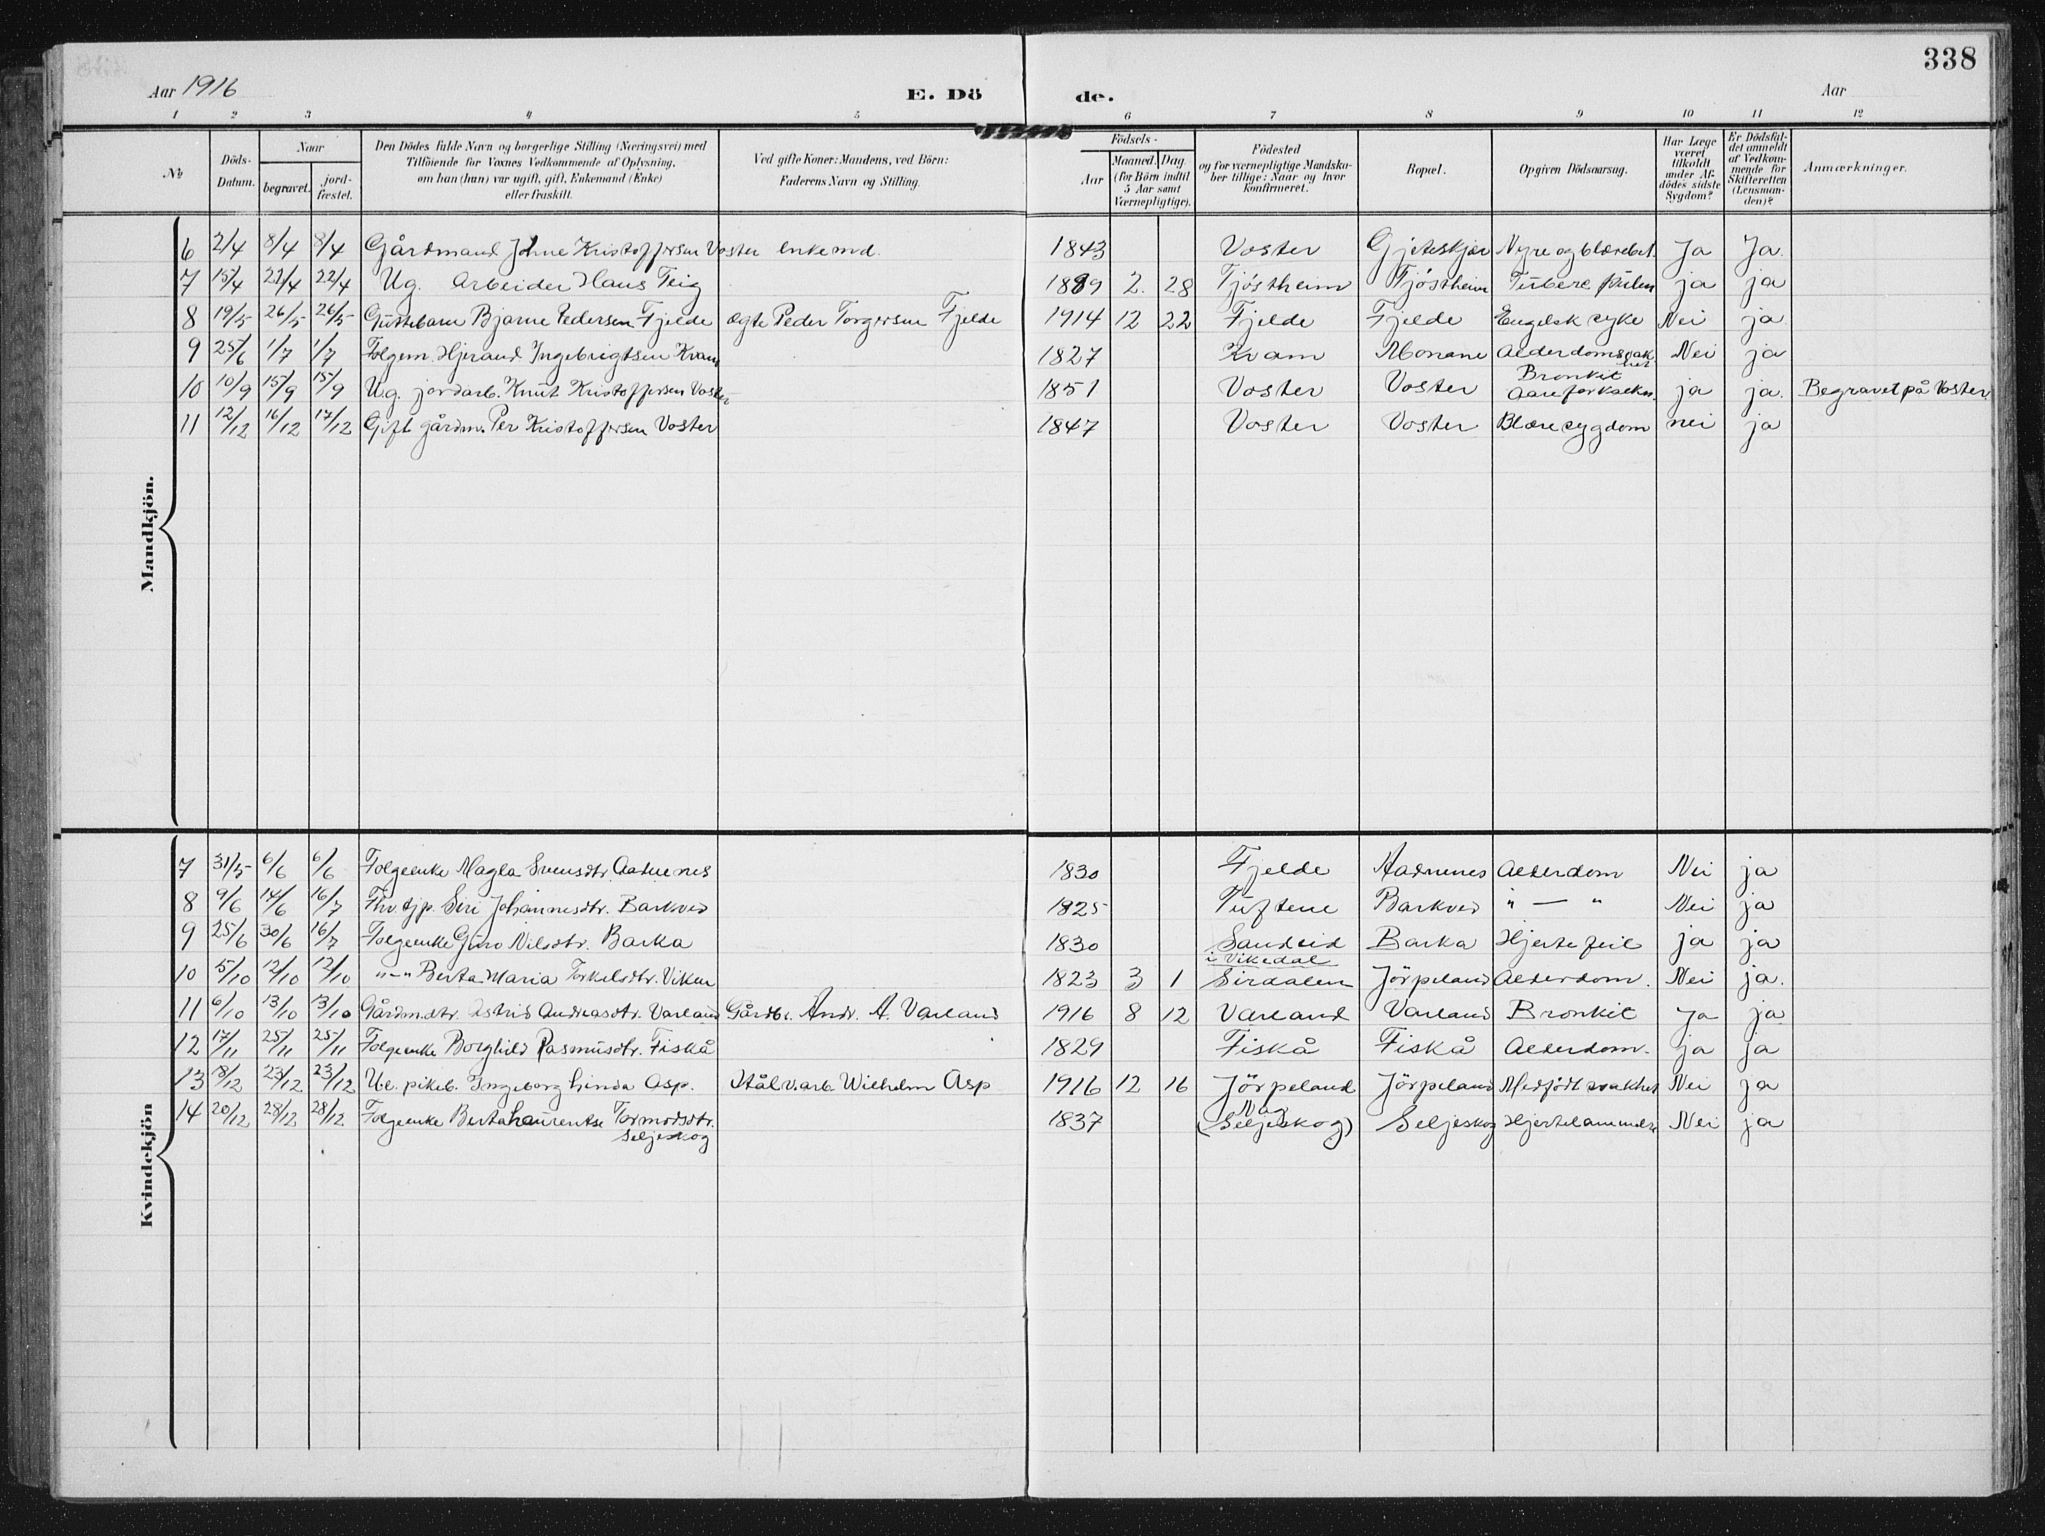 338
Aar 1916 E. Dö de. Aar
1 2 3 4 5 6 7 8 9 10 11 12
No Döds-Datum. Naar begravet. jord-fæstet. Den Dödes fulde Navn og borgerlige Stilling (Næringsvei) med Tilföiende for Voxnes Vedkommende af Oplysning, om han (hun) var ugift, gift, Enkemand (Enke) eller fraskilt. Ved gifte Koner: Mandens, ved Börn: Faderens Navn og Stilling. Födsels- Aar Maaned. Dag. (for Börn indtil 5 Aar samt Værnepligtige). Födested og for værnepligtige Mandskaber tillige: Naar og hvor Konfirmeret. Bopæl. Opgiven Dödsaarsag. Har Læge været tilkaldt under Afdödes sidste Sygdom? Er Dödsfaldet anmeldt af Vedkommende for Skifteretten (Lensmanden)? Anmærkninger.
Mandkjön.
6 2/4 8/4 8/4 Gårdmand Johne Kristoffersen Voster enkemd. 1843 Voster Gjeteskjær Nyre og blærebet. Ja Ja.
7 15/4 22/4 22/4 Ug. Arbeider Hans Teig 1889 2. 28 Tjöstheim Tjöstheim Tuberc pulm ja ja
8 19/5 26/5 26/5 Guttebarn Bjarne Pedersen Fjelde ægte Peder Torgersen Fjelde 1914 12 22 Fjelde Fjelde Engelsk syke Nei ja
9 25/6 1/7 1/7 Folgem. Hjerand Ingebrigtsen Kvam 1827 Kvam Monane Alderdomssvakhet Nei ja
10 10/9 15/9 15/9 Ug. jordarb. Knut Kristoffersen Voster 1851 Voster Voster Bronkit Aareforkalkn. ja ja. Begravet på Voster
11 12/12 16/12 17/12 Gift gårdm. Per Kristoffersen Voster 1847 Voster Voster Blæresygdom nei ja
Kvindekjön
7 31/5 6/6 6/6 Folgeenke Magla Svensdtr. Aadnenes 1830 Fjelde Aadnenes Alderdom Nei ja
8 9/6 14/6 16/7 Fhv. tjp. Siri Johannesdtr. Barkved 1825 Tuftene Barkved " — " Nei ja
9 25/6 30/6 16/7 Folgeenke Guro Nilsdtr. Barka 1830 Sandeid i Vikedal Barka Hjertefeil ja ja
10 5/10 12/10 12/10 "—" Berta Maria Torkelsdtr. Viken 1823 3 1 Sirdalen Jörpeland Alderdom. Nei ja.
11 6/10 13/10 13/10 Gårdm.dtr. Astrid Andreasdtr. Varland Gårdbr. Andr. A. Varland 1916 8 12 Varland Varland Bronkit Ja ja
12 17/11 25/11 25/11 Folgeenke Borghild Rasmusdtr. Fiskå 1829 Fiskå Fiskå Alderdom. ja ja
13 18/12 23/12 23/12 Ue. pikeb. Ingeborg Linda Asp. Stålv.arb. Wilhelm Asp 1916 12 16 Jörpeland Jörpeland Medfödt svakhet Nei ja
14 20/12 28/12 28/12 Folgeenke Berta Laurentse Tormodsdtr. Seljeskog 1837 (Seljeskog) Seljeskog Hjertelammelse Nei ja